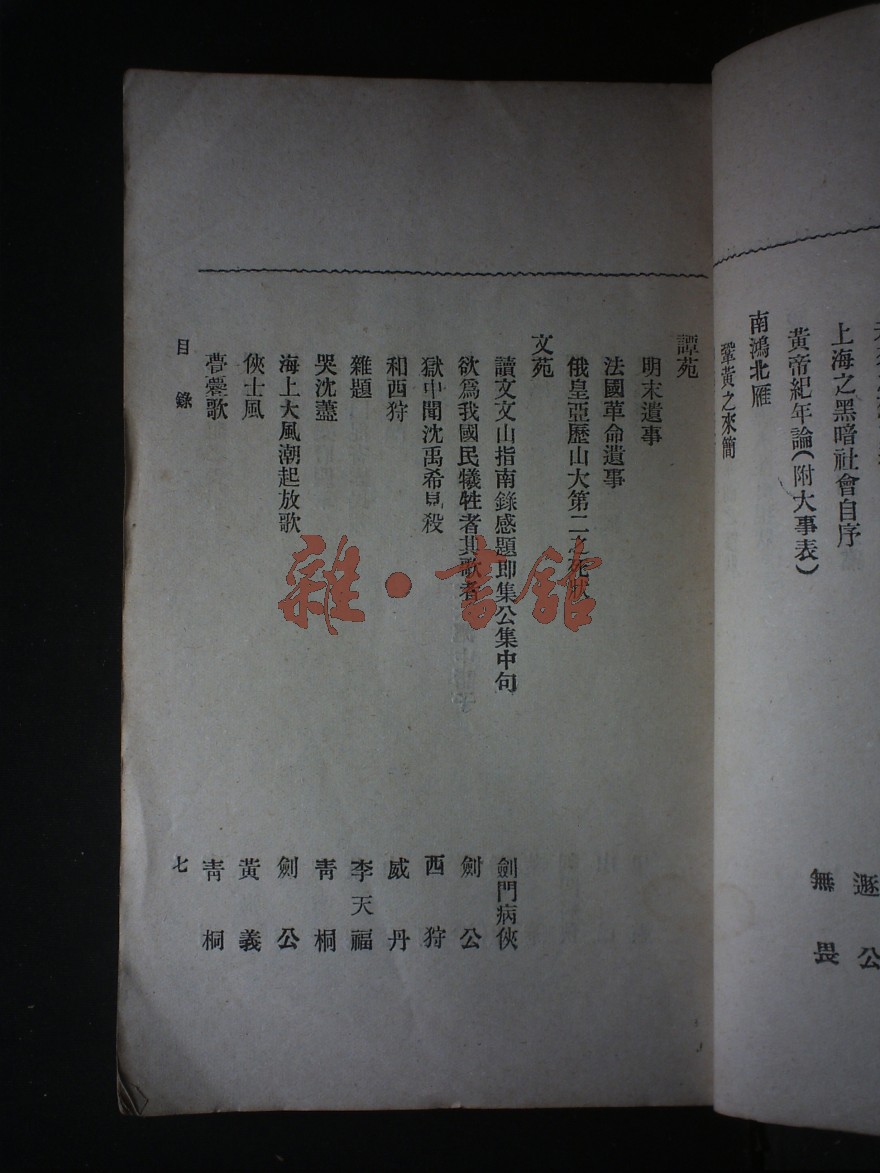 上海之黑暗社會自序
遯公
黃帝紀年論(附大事表)
無畏
南鴻北雁
鞏黃之來簡
譚苑
明末遺事
法國革命遺事
俄皇亞歷山大第二之死狀
文苑
讀文文山指南錄感題即集公集中句
劍門病俠
欲爲我國民犧牲者其歌者
劍公
獄中聞沈禹希見殺
西狩
和西狩
威丹
雜題
李天福
哭沈藎
青桐
海上大風潮起放歌
劍公
俠士風
黃義
夢㜸歌
青桐
目錄
七
雜·書舘